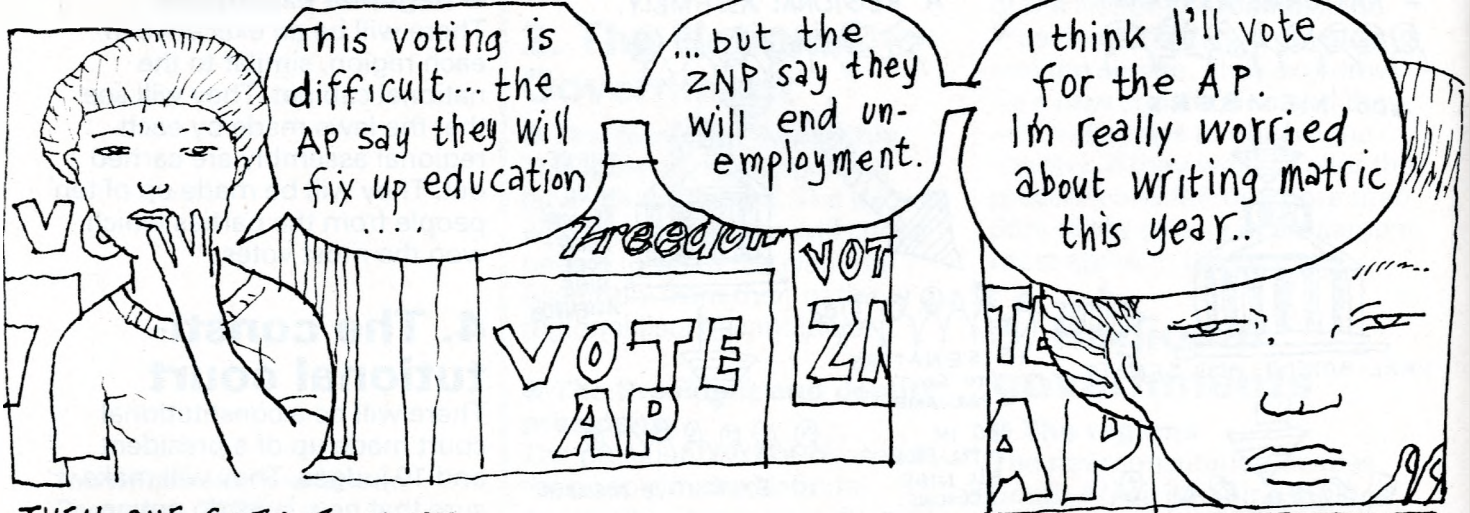 This voting is
difficult... the
AP say they will
fix up education
..but the
ZNP say they
will end un-
employment.
I think I'll vote
for the AP.
Im really worried
about writing matric
this year..
Freedom
VOTE
AP
VOT
ZN
TE
AP
4. The consti-
tutional court